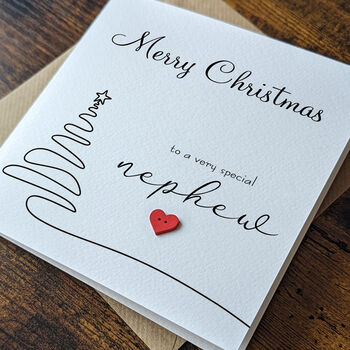 Merry Christmas
to a very special
nephew